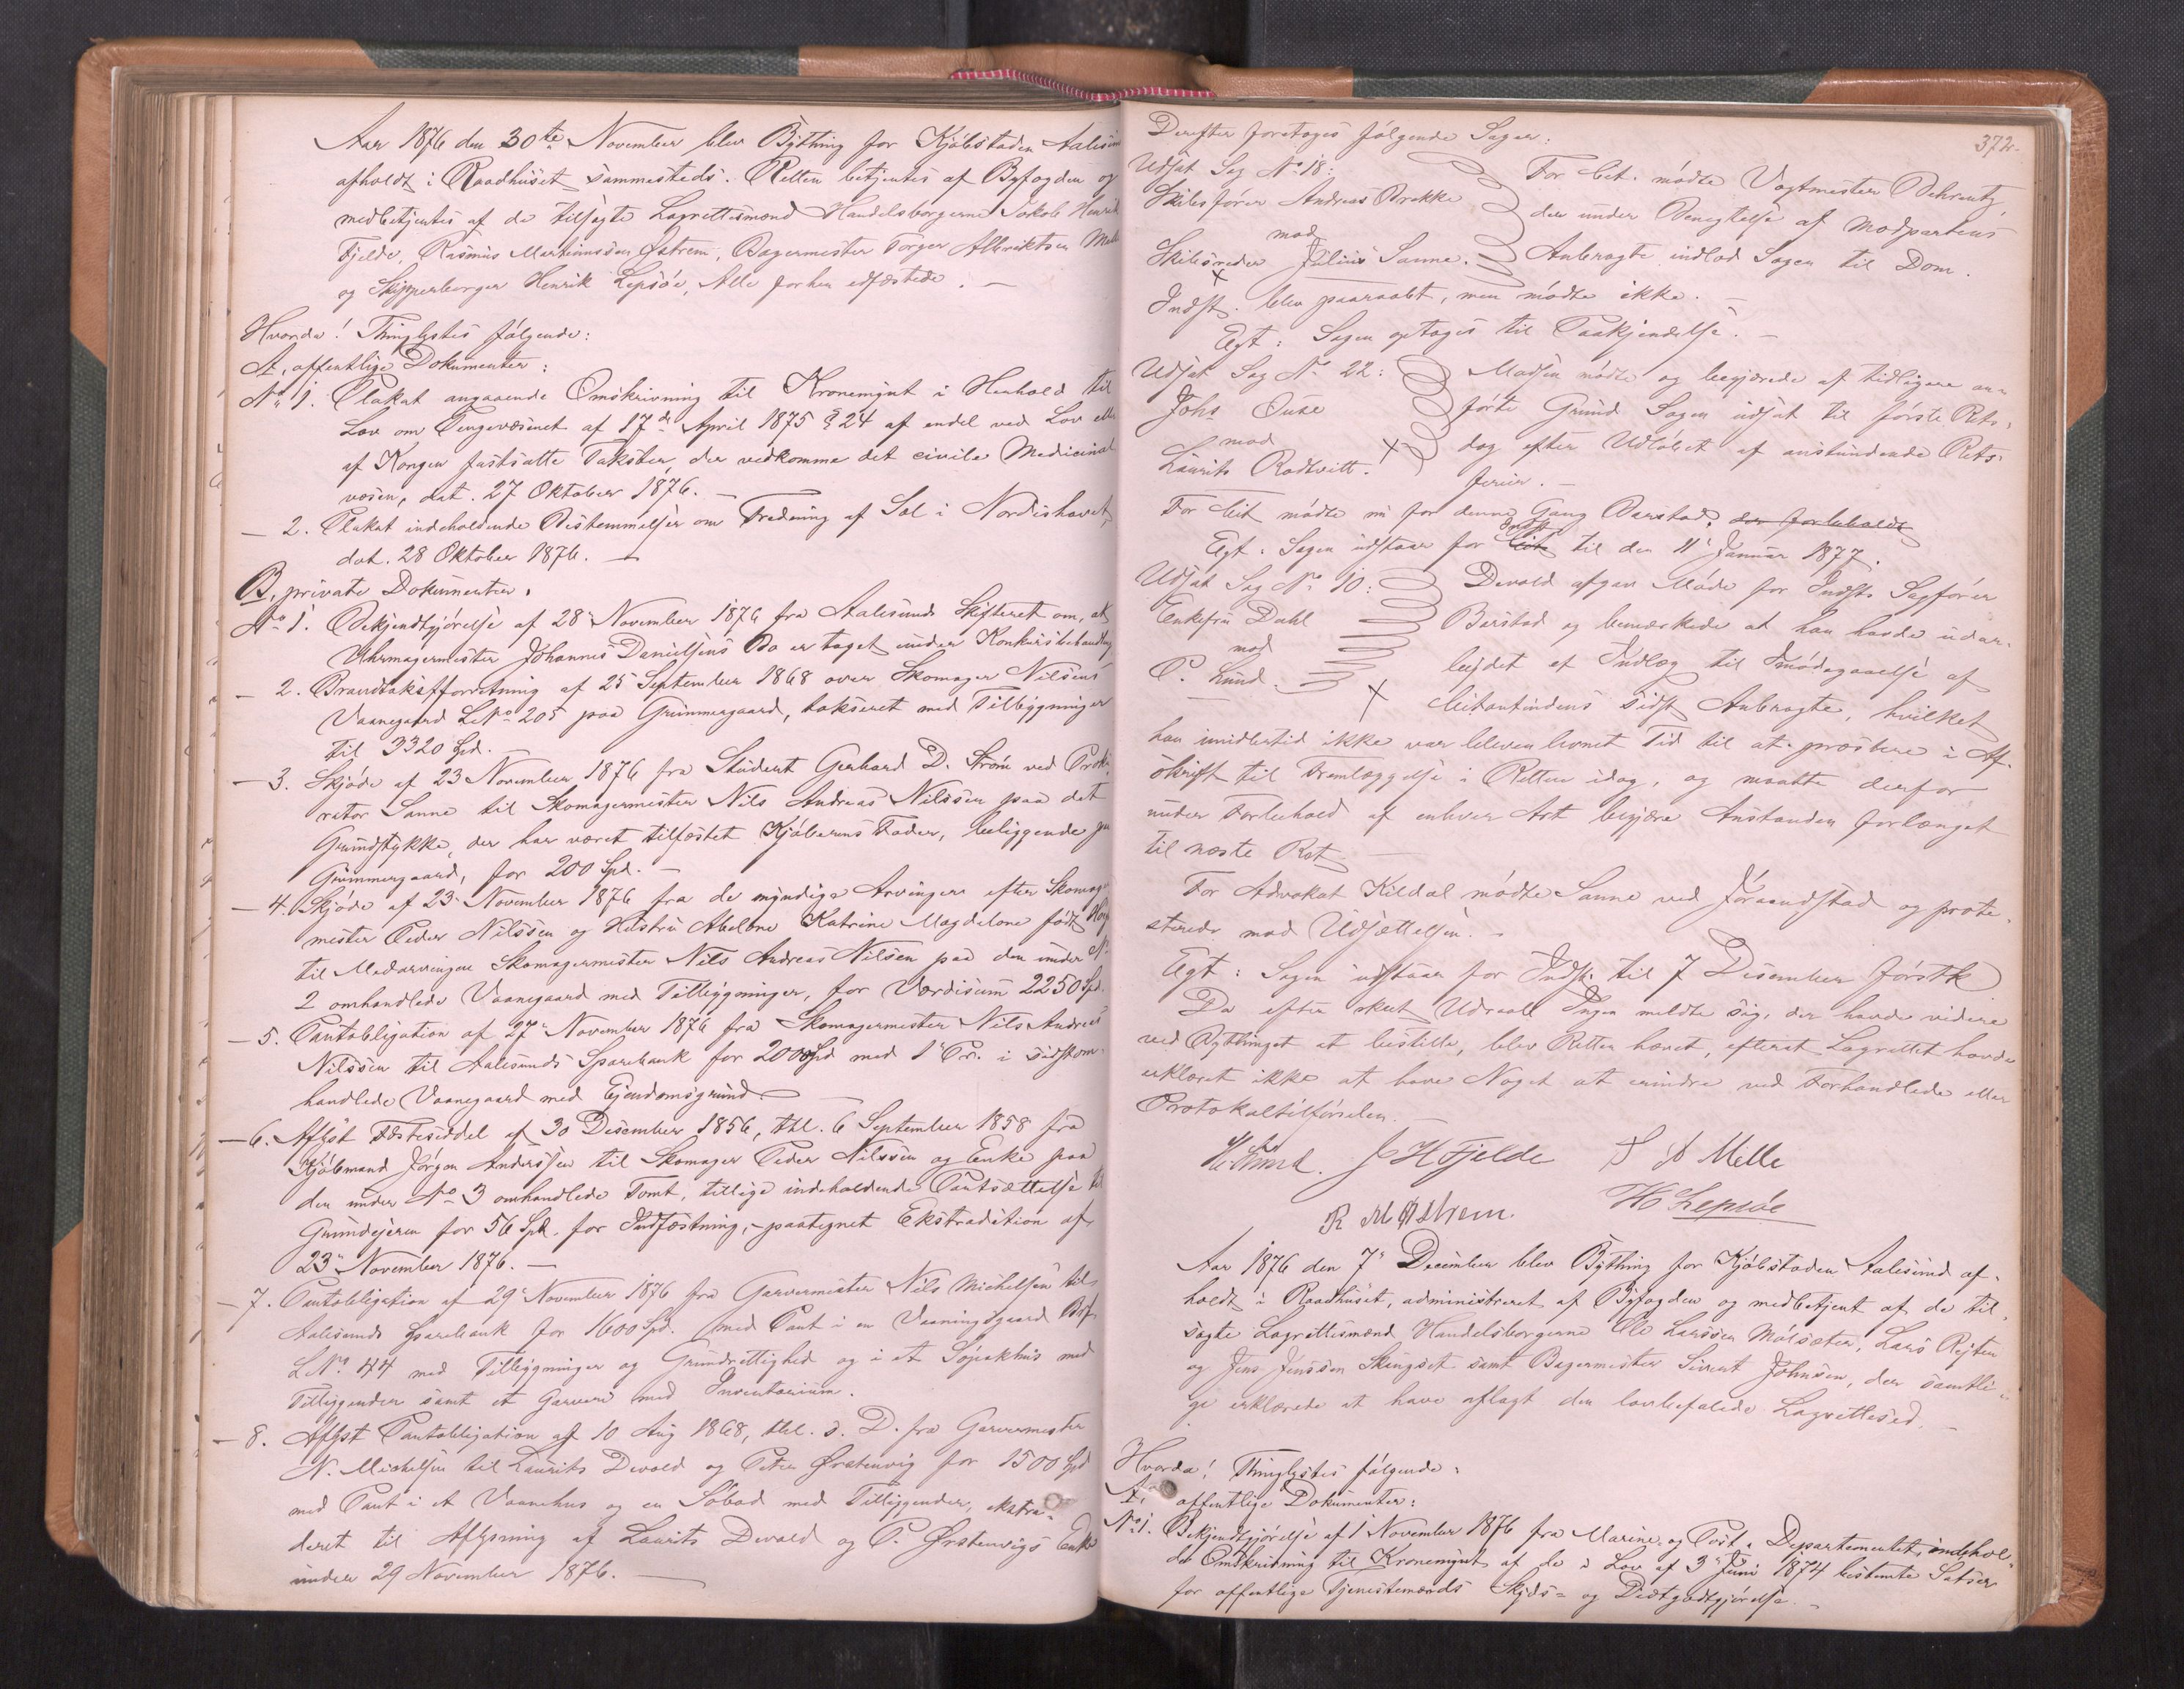 Aar 1876 den 30te November blev Bything for Kjöbstaden Aalesund
afholdt i Raadhuset sammesteds. Retten betjentes af Byfogden og
medbetjentes af de tilsagte Lagrettesmænd Handelsborgerne Jakob Henrik
Fjelde, Rasmus Martinussen Østrem, Bagermester Torger Albriktsen Melle
og Skipperborger Henrik Lepsöe, Alle forhen edfæstede. —
Hvorda! Thinglystes fölgende:
A, offentlige Dokumenter:
No 1. Plakat angaaende Omskrivning til Kronemynt i Henhold til
Lov om Pengevæsenet af 17de April 1875 § 24 af endel ved Lov eller
af Kongen fastsatte Takster, der vedkomme det civile Medicinal
væsen, dat. 27 Oktober 1876. —
— 2. Plakat indeholdende Bestemmelser om Fredning af Sæl i Nordishavet,
dat. 28 Oktober 1876. —
B, private Dokumenter.
No 1. Bekjendtgjörelse af 28 November 1876 fra Aalesunds Skifteret om, at
Uhrmagermester Johannes Danielsens Bo er taget under Konkursbehandling
— 2. Brandtakstforretning af 25 September 1868 over Skomager Nilsens
Vaanegaard LNo 205 paa Grimmergaard, takseret med Tilbygninger
til 3320 Spd. —
— 3. Skjöde af 23 November 1876 fra Student Gerhard D. Ström ved Proku-
rator Sanne til Skomagermester Nils Andreas Nilssen paa det
Grundstykke, der har været tilfæstet Kjöberens Fader, beliggende paa
Grimmergaard, for 200 Spd. —
— 4. Skjöde af 23 November 1876 fra de myndige Arvinger efter Skomager
mester Peder Nilssen og Hustru Abelone Katrine Magdalene född
til Medarvingen Skomagermester Nils Andreas Nilsen paa den under No
2 omhandlede Vaanegaard med Tilbygninger, for Værdisum 2250 Spd.
— 5. Pantobligation af 27 November 1876 fra Skomagermester Nils Andreas
Nilssen til Aalesunds Sparebank for 2000 Spd med 1 Pr. i sidstom-
handlede Vaanegaard med Ejendomsgrund. —
— 6. Aflyst Fæsteseddel af 30 Desember 1856, thl. 6 September 1858 fra
Kjöbmand Jörgen Anderssen til Skomager Peder Nilssen og Enke paa
den under No 3 omhandlede Tomt, tillige indeholdende Pantsættelse til
Grundejeren for 56 Spd. for Indfæstning, - paategnet Ekstradition af
23 November 1876. —
— 7. Pantobligation af 29 November 1876 fra Garvermester Nils Michelsen til
Aalesunds Sparebank for 1600 Spd. med Pant i en Vaaningsgaard
LNo 44 med Tilbygninger og Grundrettighed og i et Söpakhus med
Tilliggender samt et Garveri med Inventarium.
— 8. Aflyst Pantobligation af 10 Aug 1868, thl. s. D. fra Garvermester
N. Michelsen til Laurits Devold og Peter Ørstenvig for 1500 Spd
med Pant i et Vaanehus og en Söbod med Tilliggender, ekstra-
deret til Aflysning af Laurits Devold og P. Ørstenvigs Enke
under 29 November 1876. —
372.
Derefter foretoges fölgende Sager:
Udsat Sag No 18:
Skibsförer Andreas Brekke
mod
Skibsreder Julius Sanne.
For Cit. mödte Vagtmester Behrentz,
der under Benegtelse af Modpartens
Anbragte indlod Sagen til Dom.
Indst. blev paaraabt, men mödte ikke. —
Egt: Sagen optoges til Paakjendelse. —
Udsat Sag No 22:
Johs Ouse
mod
Laurits Rodtvitt.
Madsen mödte og begjærede af tidligere an-
förte Grund Sagen udsat til förste Rets-
dag efter Udlöbet af anstundende Rets-
ferier. —
For Cit mödte nu for denne Gang Barstad, der forbeholdt
Egt: Sagen udstaar for Indst. til den 11 Januar 1877.
Udsat Sag No 10:
Enkefru Dahl
mod
P. Lund.
Devold afgav Möde for Indsts Sagförer
Barstad og bemærkede at han havde udar-
bejdet et Indlæg til Imödegaaelse af
Citantindens sidst Anbragte, hvilket
han imidlertid ikke var bleven levnet Tid til at præstere i Af-
skrift til Fremlæggelse i Retten idag, og maatte derfor
under Forbehold af enhver Art begjære Anstanden forlænget
til næste Ret. —
For Advokat Kildal mödte Sanne ved Jörandstad og prote-
sterede mod Udsættelsen. —
Egt: Sagen udstaar for Indst. til 7 Desember förstk
Da efter skeet Udraab Ingen meldte sig, der havde videre
ved Bythinget at bestille, blev Retten hævet, efterat Lagrettet havde
erklæret ikke at have Noget at erindre ved Forhandlede eller
Protokoltilförselen. —
J H Fjelde T A Melle
R M Østrem. H Lepsöe
Aar 1876 den 7 December blev Bything for Kjöbstaden Aalesund af-
holdt i Raadhuset, administreret af Byfogden og medbetjent af de til-
sagte Lagrettesmænd Handelsborgerne Ole Larssen Molsæter, Lars Rejten
og Jens Jenssen Skingset samt Bagermester Sivert Johnsen, der samtli-
ge erklærede at have aflagt den lovbefalede Lagrettesed. —
Hvorda! Thinglystes fölgende:
A, offentlige Dokumenter:
No 1. Bekjendtgjörelse af 1 November 1876 fra Marine og Post-Departementet, indehol-
de Omskrivning til Kronemynt af de i Lov af 3 Juni 1874 bestemte Satser
for offentlige Tjenestemænds Skyds- og Diætgodtgjörelse. —